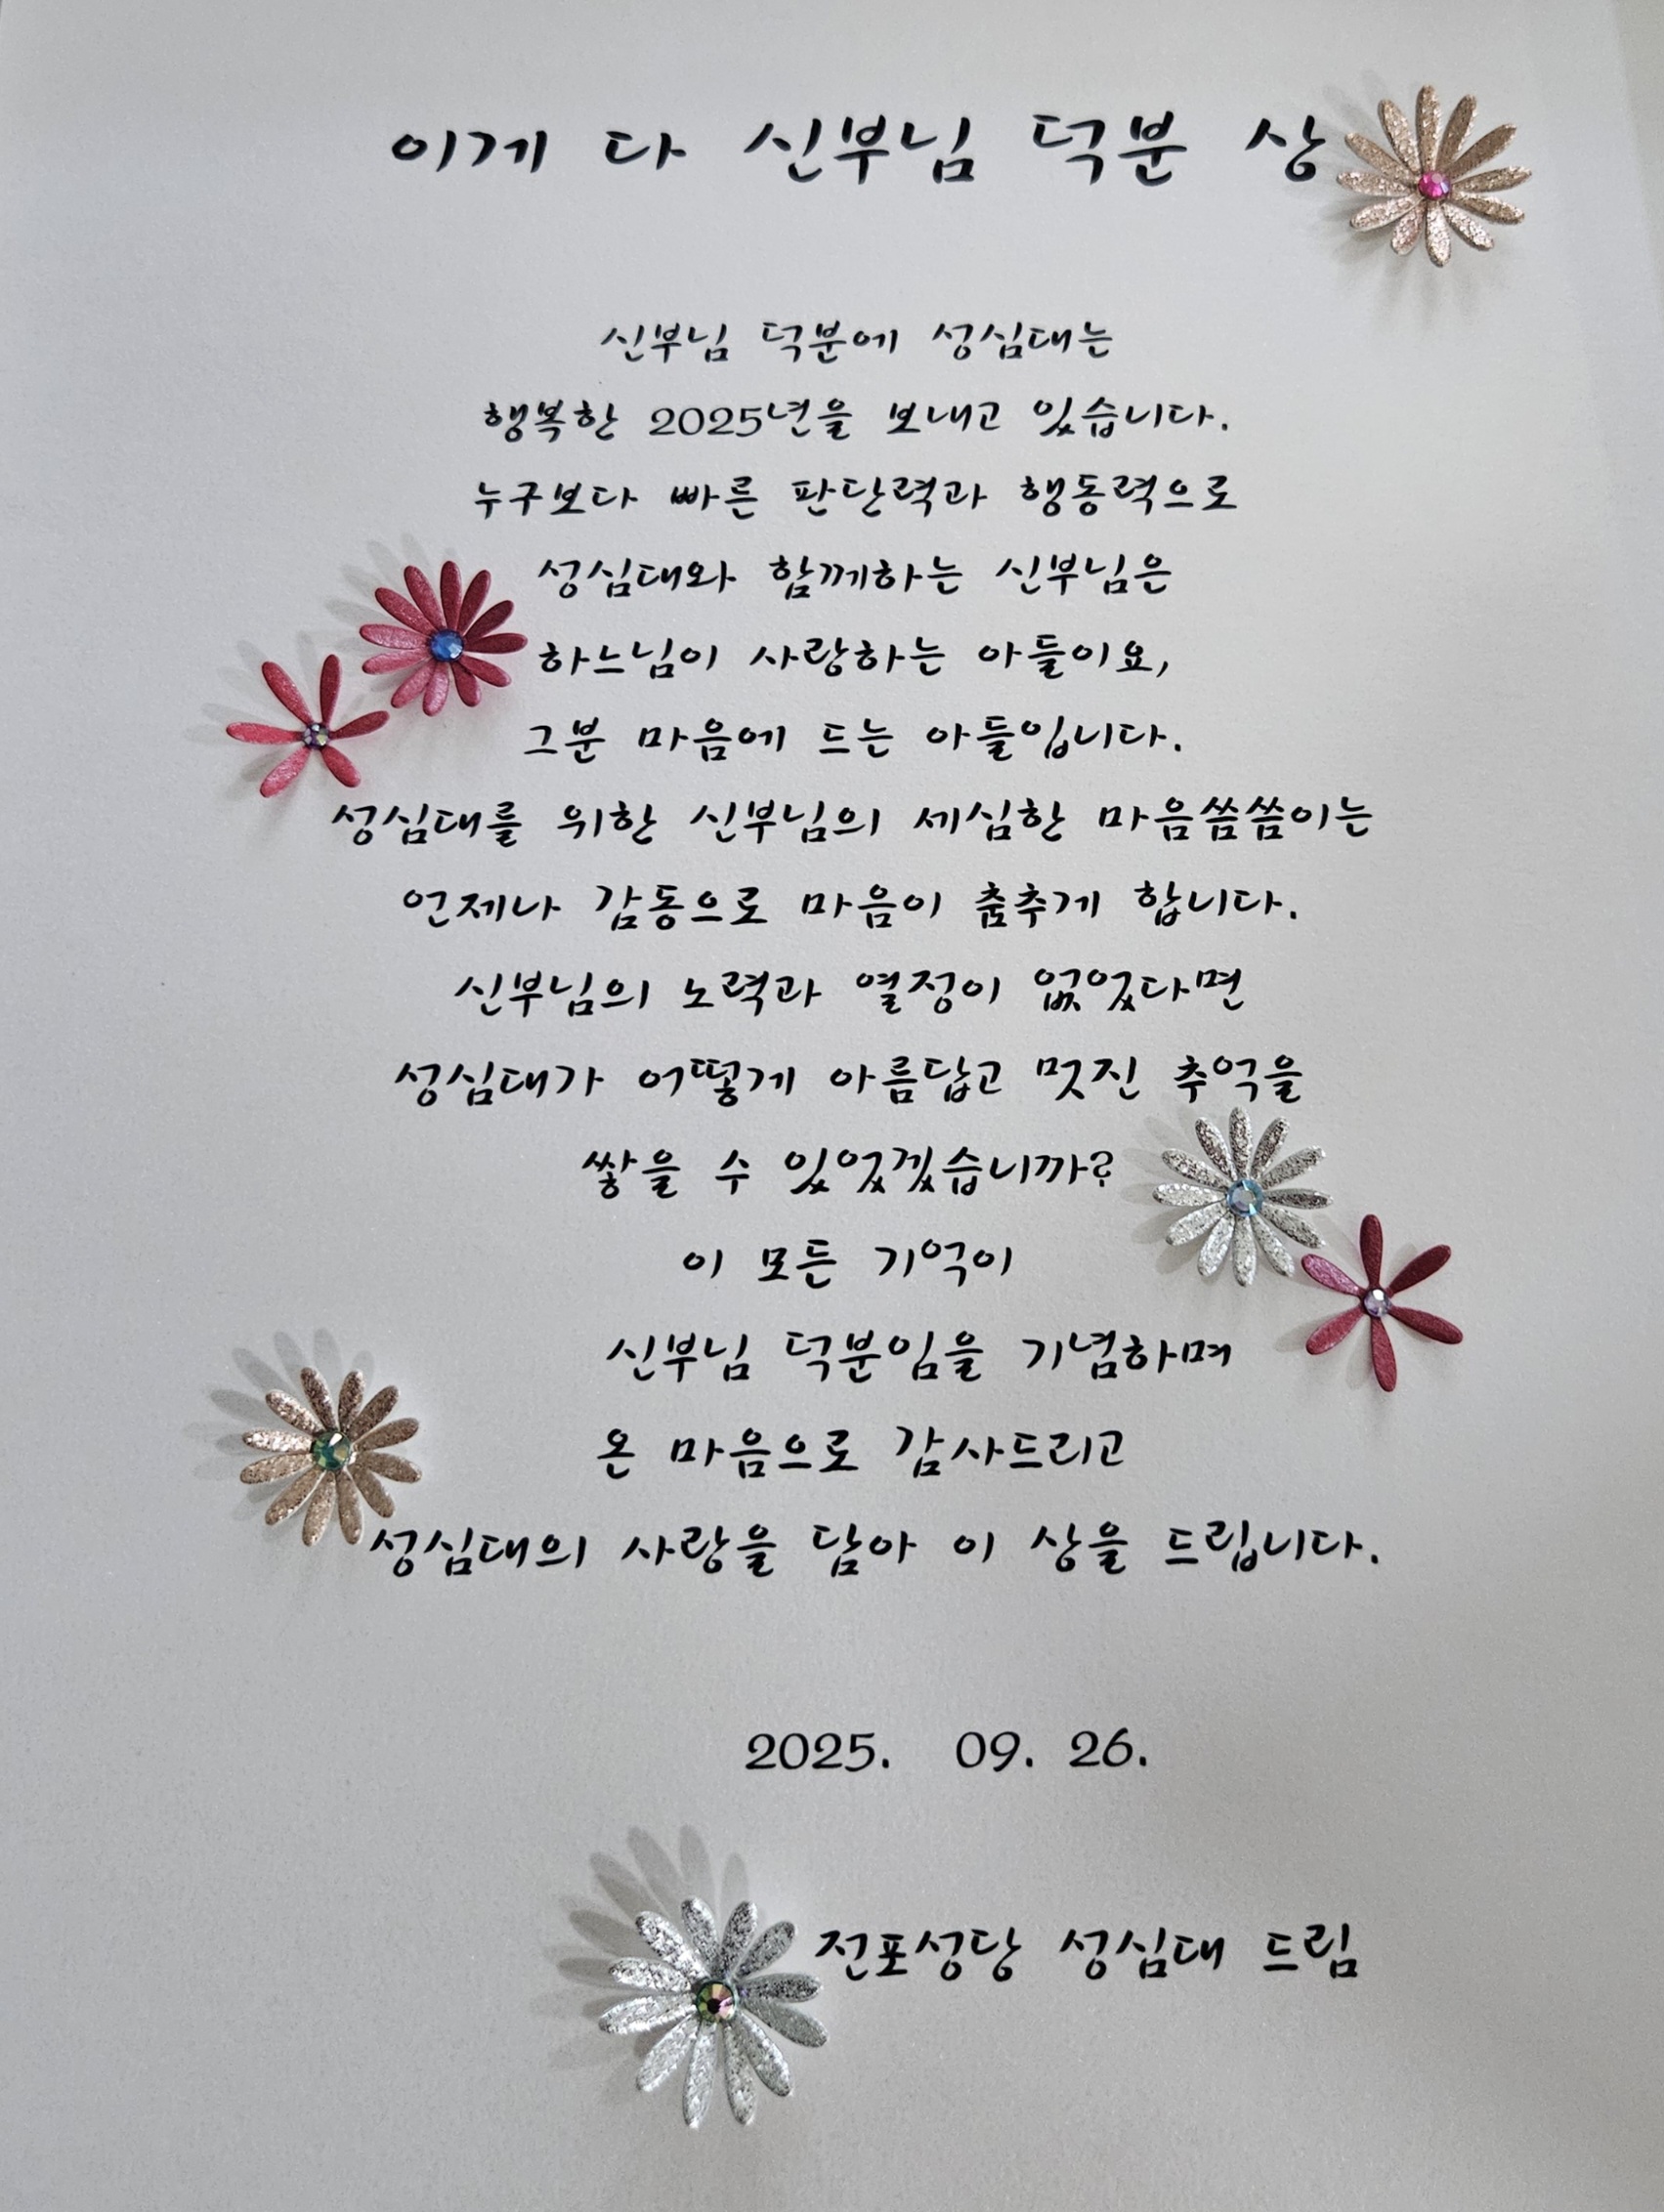 이게 다 신부님 덕분 상
신부님 덕분에 성심대는
행복한 2025년을 보내고 있습니다.
누구보다 빠른 판단력과 행동력으로
성심대와 함께하는 신부님은
하느님이 사랑하는 아들이요,
그분 마음에 드는 아들입니다.
성심대를 위한 신부님의 세심한 마음씀씀이는
언제나 감동으로 마음이 춤추게 합니다.
신부님의 노력과 열정이 없었다면
성심대가 어떻게 아름답고 멋진 추억을
쌓을 수 있었겠습니까?
이 모든 기억이
신부님 덕분임을 기념하며
온 마음으로 감사드리고
성심대의 사랑을 담아 이 상을 드립니다.
2025. 09. 26.
전포성당 성심대 드림